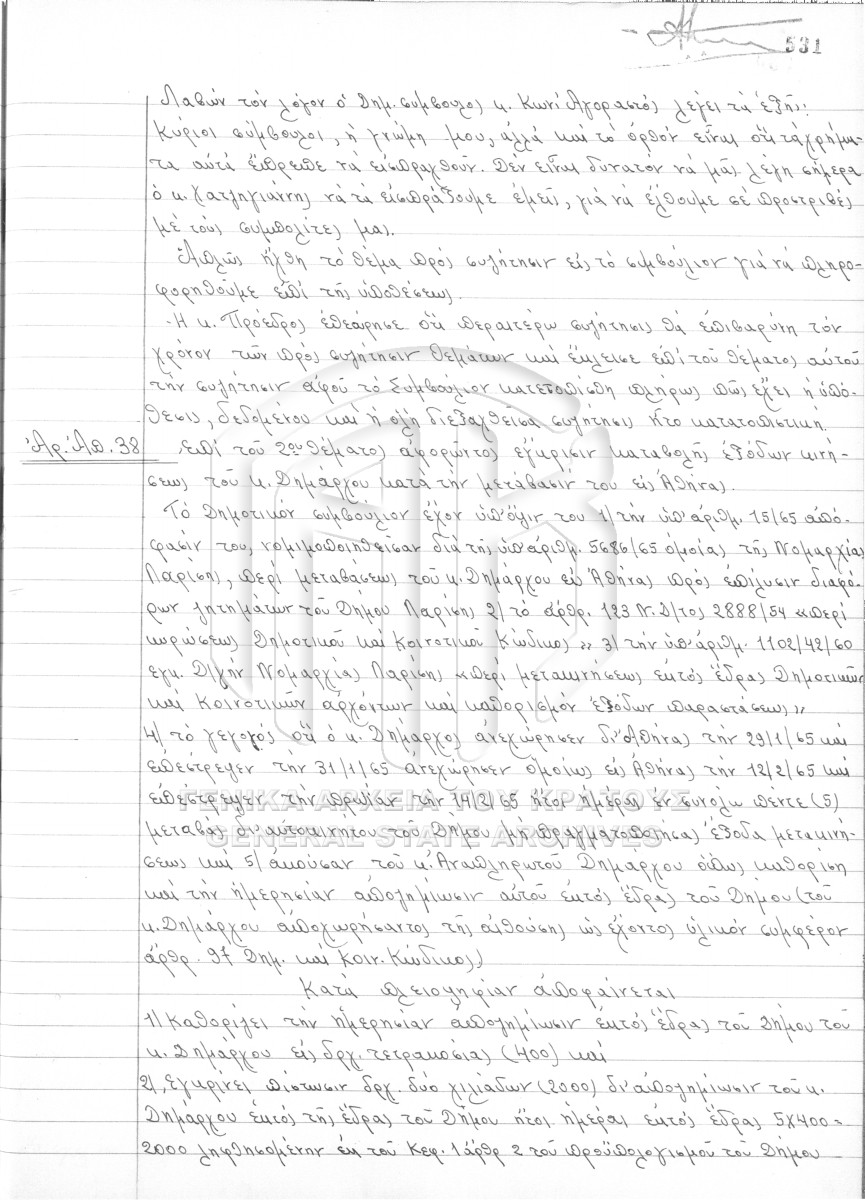 531
Λαβών τον λόγον ο Δημ. σύμβουλος κ. Κων/ Αγοραστός λέγει τα εξής:
Κύριοι σύμβουλοι, η γνώμη μου, αλλά και το ορθόν είναι ότι τα χρήμα-
τα αυτά έπρεπε να εισπραχθούν. Δεν είναι δυνατόν να μας λέγη σήμερα
ο κ. Χατζηγιάννης να τα εισπράξουμε εμείς, για να έλθουμε σε προστριβές
με τους συμπολίτες μας.
Απλώς ήχθη το θέμα προς συζήτησιν εις το συμβούλιον για να πληρο-
φορηθούμε επί της υποθέσεως.
Η κ. Πρόεδρος εθεώρησε ότι περαιτέρω συζήτησις θα επιβαρύνη τον
χρόνον των προς συζήτησιν θεμάτων και έκλεισε επί του θέματος αυτού
την συζήτησιν αφού το Συμβούλιον κατετοπίσθη πλήρως πώς έχει η υπό-
θεσις, δεδομένου και η όλη διεξαχθείσα συζήτησις ήτο κατατοπιστική.
Αρ. Απ. 38
Επί του 2ου θέματος αφορώντος έγκρισιν καταβολής εξόδων κινή-
σεως του κ. Δημάρχου κατά την μετάβασίν του εις Αθήνας.
Το Δημοτικόν συμβούλιον έχον υπ' όψιν του 1/ την υπ' αριθμ. 15/65 από-
φασίν του, νομιμοποιηθείσαν διά της υπ' αριθμ. 5686/65 ομοίας της Νομαρχίας
Λαρίσης, περί μεταβάσεως του κ. Δημάρχου εις Αθήνας προς επίλυσιν διαφό-
ρων ζητημάτων του Δήμου Λαρίσης 2/ το άρθρ. 123 Ν.Δ/τος 2888/54 «περί
κυρώσεως Δημοτικού και Κοινοτικού Κώδικος» 3/ την υπ' αριθμ. 1102/42/60
εγκ. Δ/γήν Νομαρχίας Λαρίσης «περί μετακινήσεως εκτός έδρας Δημοτικών
και Κοινοτικών αρχόντων και καθορισμόν εξόδων παραστάσεως»
4/ το γεγονός ότι ο κ. Δήμαρχος ανεχώρησεν δι' Αθήνας την 29/1/65 και
επέστρεψεν την 31/1/65 ανεχώρησεν ομοίως εις Αθήνας την 12/2/65 και
επέστρεψεν την πρωίαν την 14/2/65 ήτοι ημέραι εν συνόλω πέντε (5)
μεταβάς δι' αυτοκινήτου του Δήμου μη πραγματοποιήσας έξοδα μετακινή-
σεως και 5/ ακούσαν του κ. Αναπληρωτού Δημάρχου όπως καθορίση
και την ημερησίαν αποζημίωσιν αυτού εκτός έδρας του Δήμου (του
κ. Δημάρχου αποχωρήσαντος της αιθούσης ως έχοντος υλικόν συμφέρον
άρθρ. 97 Δημ. και Κοιν. Κώδικος)
Κατά πλειοψηφίαν αποφαίνεται
1) Καθορίζει την ημερησίαν αποζημίωσιν εκτός έδρας του Δήμου του
κ. Δημάρχου εις δρχ. τετρακοσίας (400) και
2) Εγκρίνει πίστωσιν δρχ. δύο χιλιάδων (2000) δι' αποζημίωσιν του κ.
Δημάρχου εκτός της έδρας του Δήμου ήτοι ημέραι εκτός έδρας 5Χ400=
2000 ληφθησομένην εκ του Κεφ. 1 άρθρ 2 του προϋπολογισμού του Δήμου
ΓΕΝΙΚΑ ΑΡΧΕΙΑ ΤΟΥ ΚΡΑΤΟΥΣ
GENERAL STATE ARCHIVES